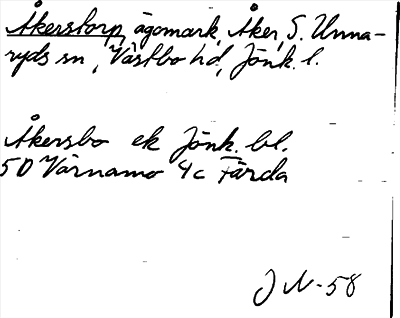 Åkerstorp, ägomark, Åker, S. Unna-
ryds sn, Västbo hd, Jönk. l.
Åkersbo ek Jönk. bl.
5D Värnamo 4c Färda
J N-58